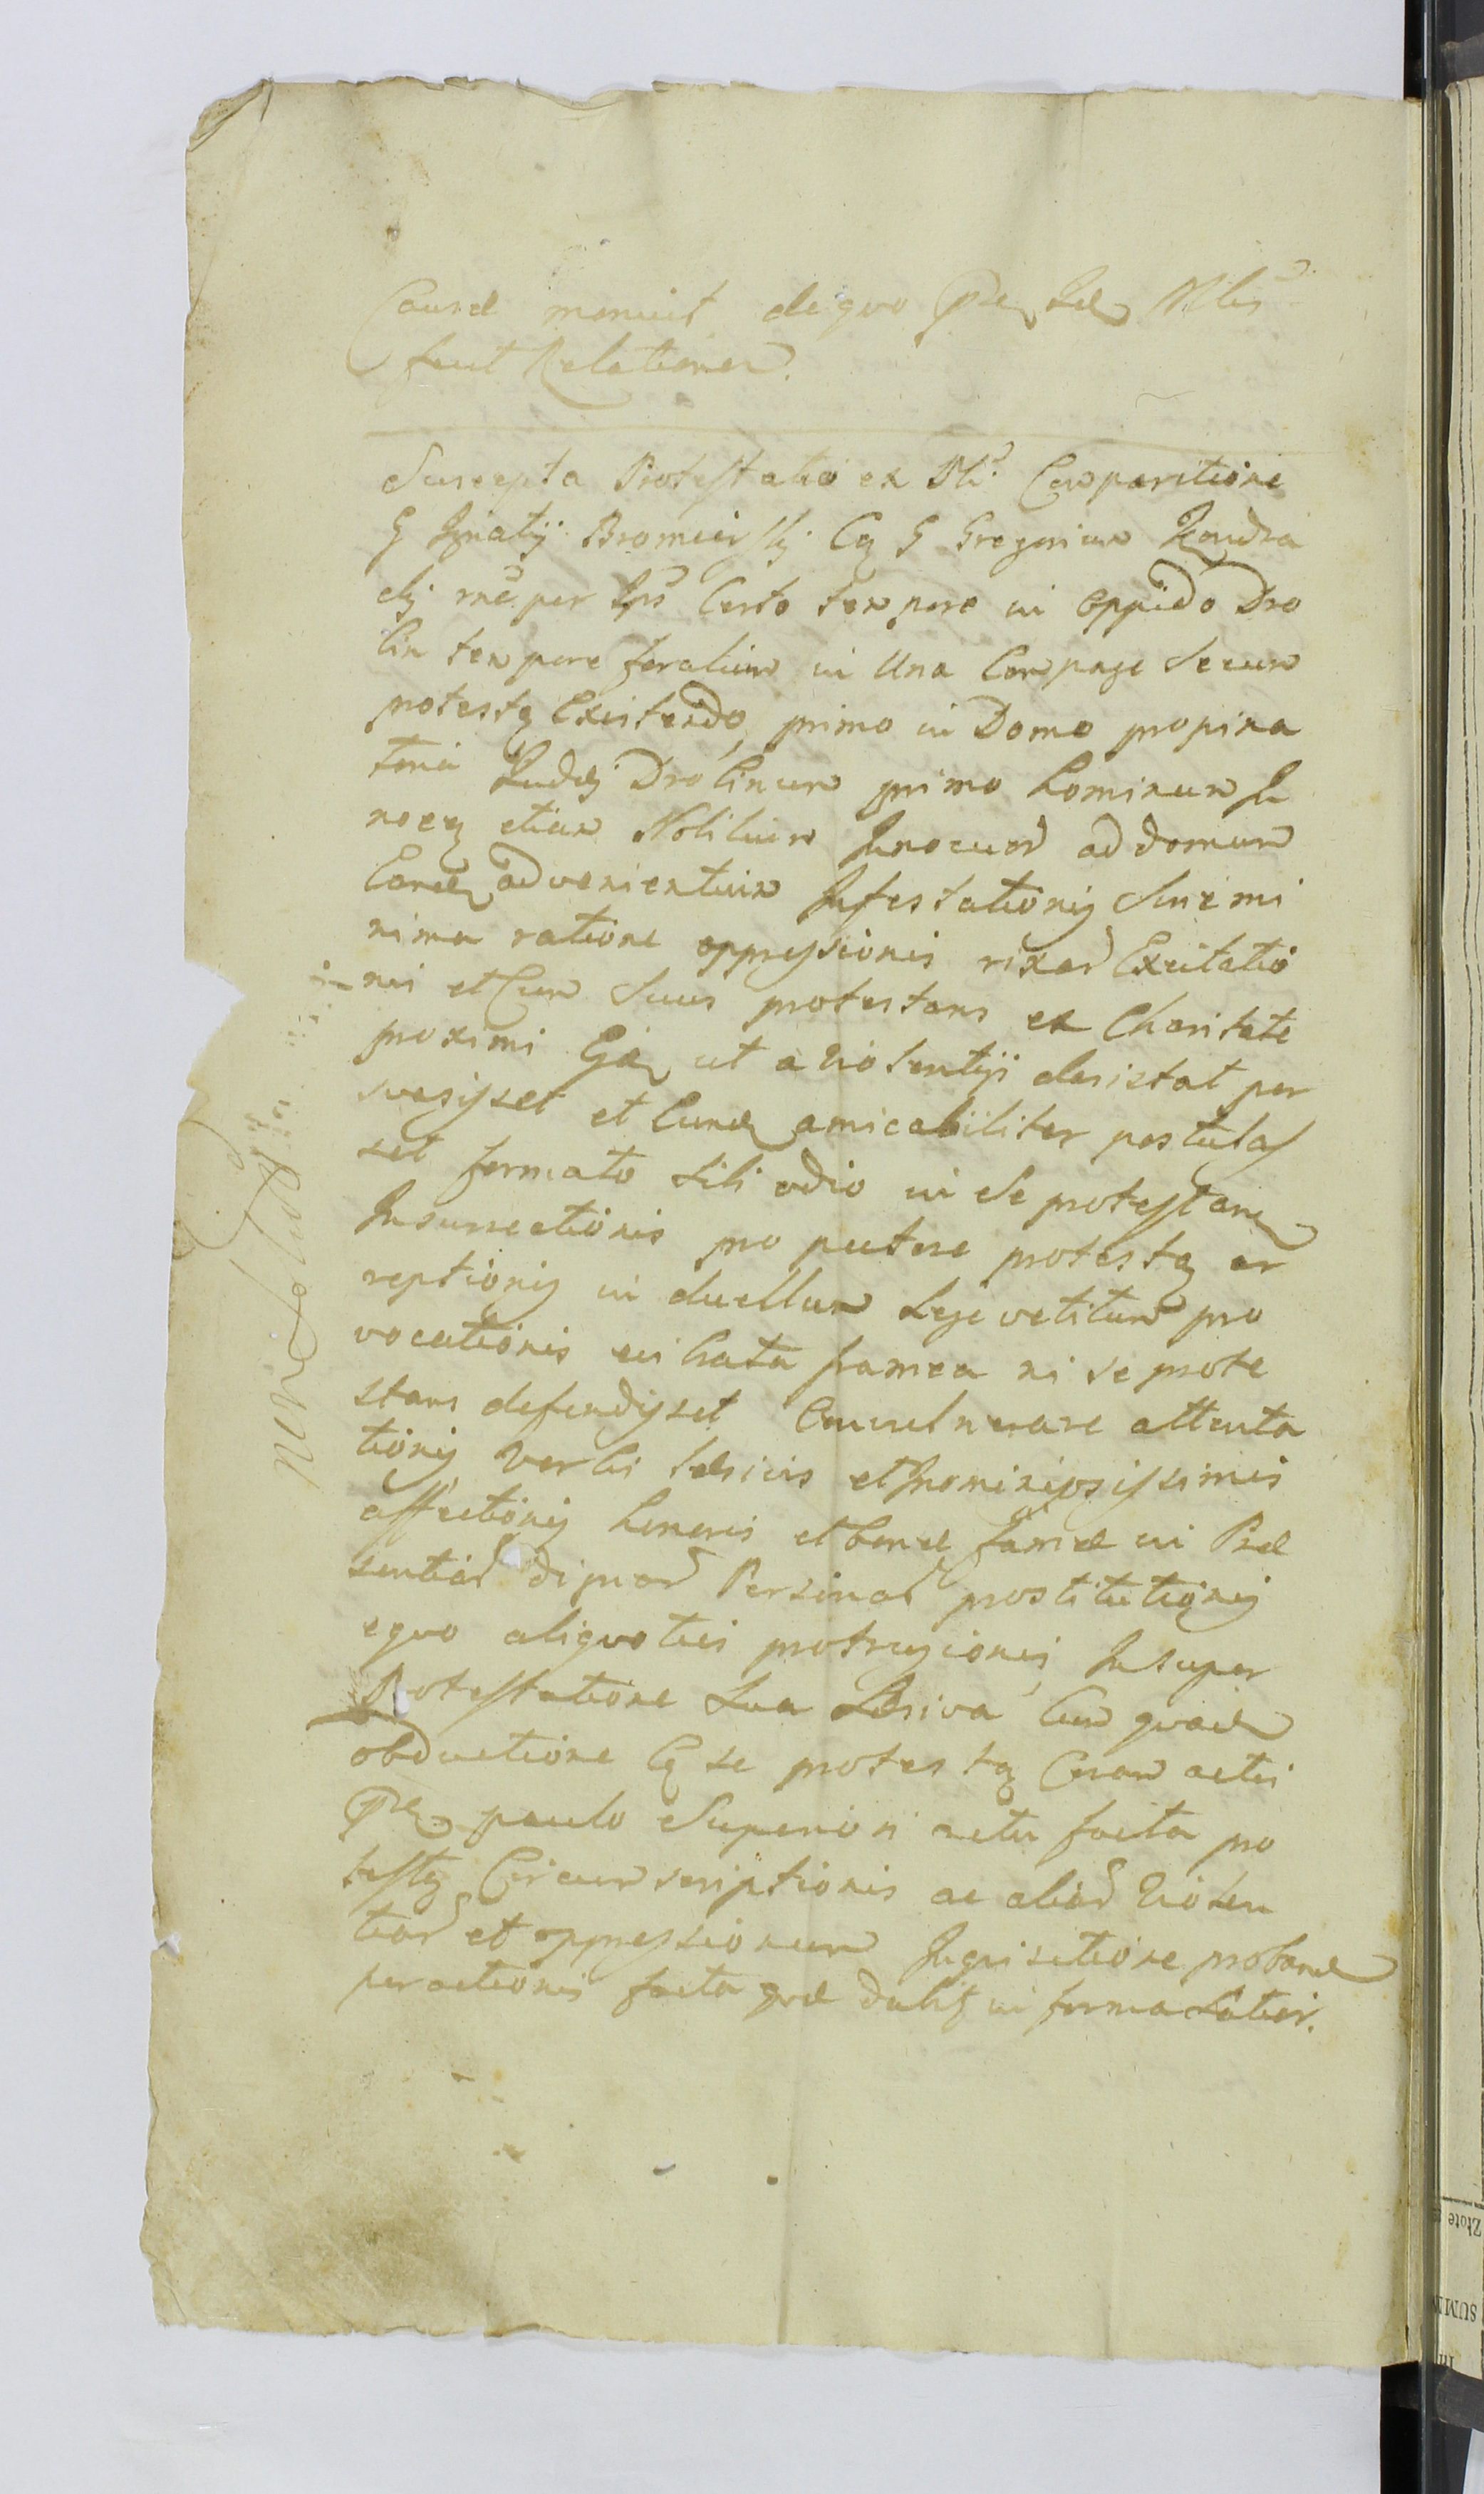 Causae monuit de quo
fecit Relationem.
Suscepta Protestatio ex Comparitione
G Ignatij Bromierskj Cq G Gregorium Kondra
ckj rne per Certo tempore in oppido Dro
bin tempore foralium in Una Compage Secum
protestq Existendo, primo in Domo propina
toria Judej Drobinum primo hominum In
nocq etiam Nobilium Innocuor ad domum
Eand advenientium Infestationis Sine mi
nima ratione oppressionis rixar Excitatio
nis et Cum Suus protestans ex Charitate
proximi ut a Violentijs desistat per
svasisset et Eund amicabiliter postulas
set formato Sibi odio in Se protestan
Insurrectionis pro pectore protestq ar
reptionis in duellum Lege vetitum pro
vocationis vibrata framea ni se prote
stans defendisset Convulnerare attenta
tionis Verbis Laesivis et Ignominiosissimis
affectionis honoris et bonae famae in Prae
sentiar dignar Personar prostitutionis
equo aliquoties protrusionis, Insuper
Protestatione Sua Laesiva Cum
obductione Cq se protestq Coram actis
paulo Superiori ritu facta pro
testq Circumscriptionis ac aliar Violen
tiar et oppressionum Inquisitione proband
peractionis facta in forma Latiori.